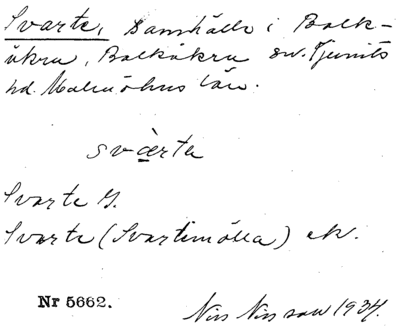 Svarte, Samhälle i Balk-
åkra, Balkåkra sn. Ljunits
hd. Malmöhus län.
svàrta
Svarte G.
Svarte (Svartemölla) ek.
Nr 5662.
Nils Nilsson 1934.